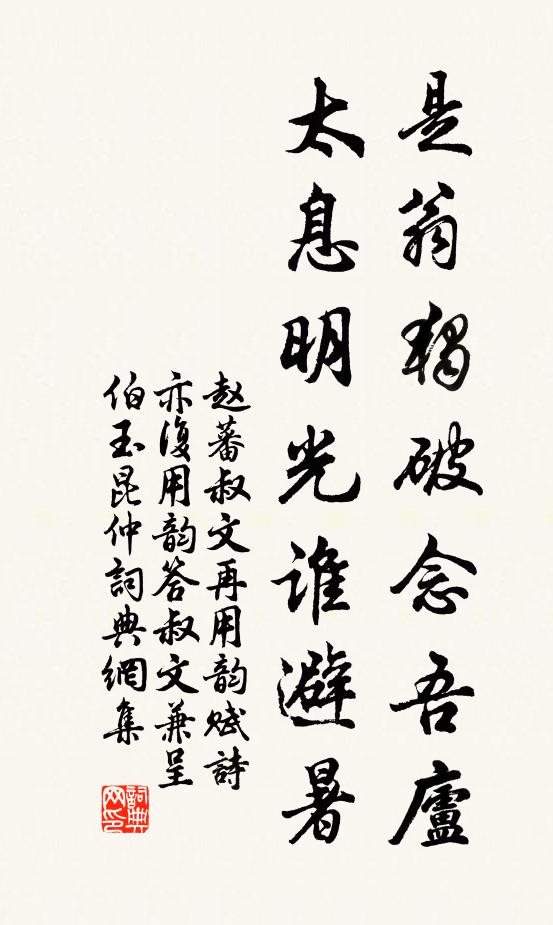 是翁獨破念吾廬
太息明光誰避暑
赵蕃叔文再用韵赋詩
亦復用韵答叔文兼呈
伯玉昆仲詞典網集
詞典
网印